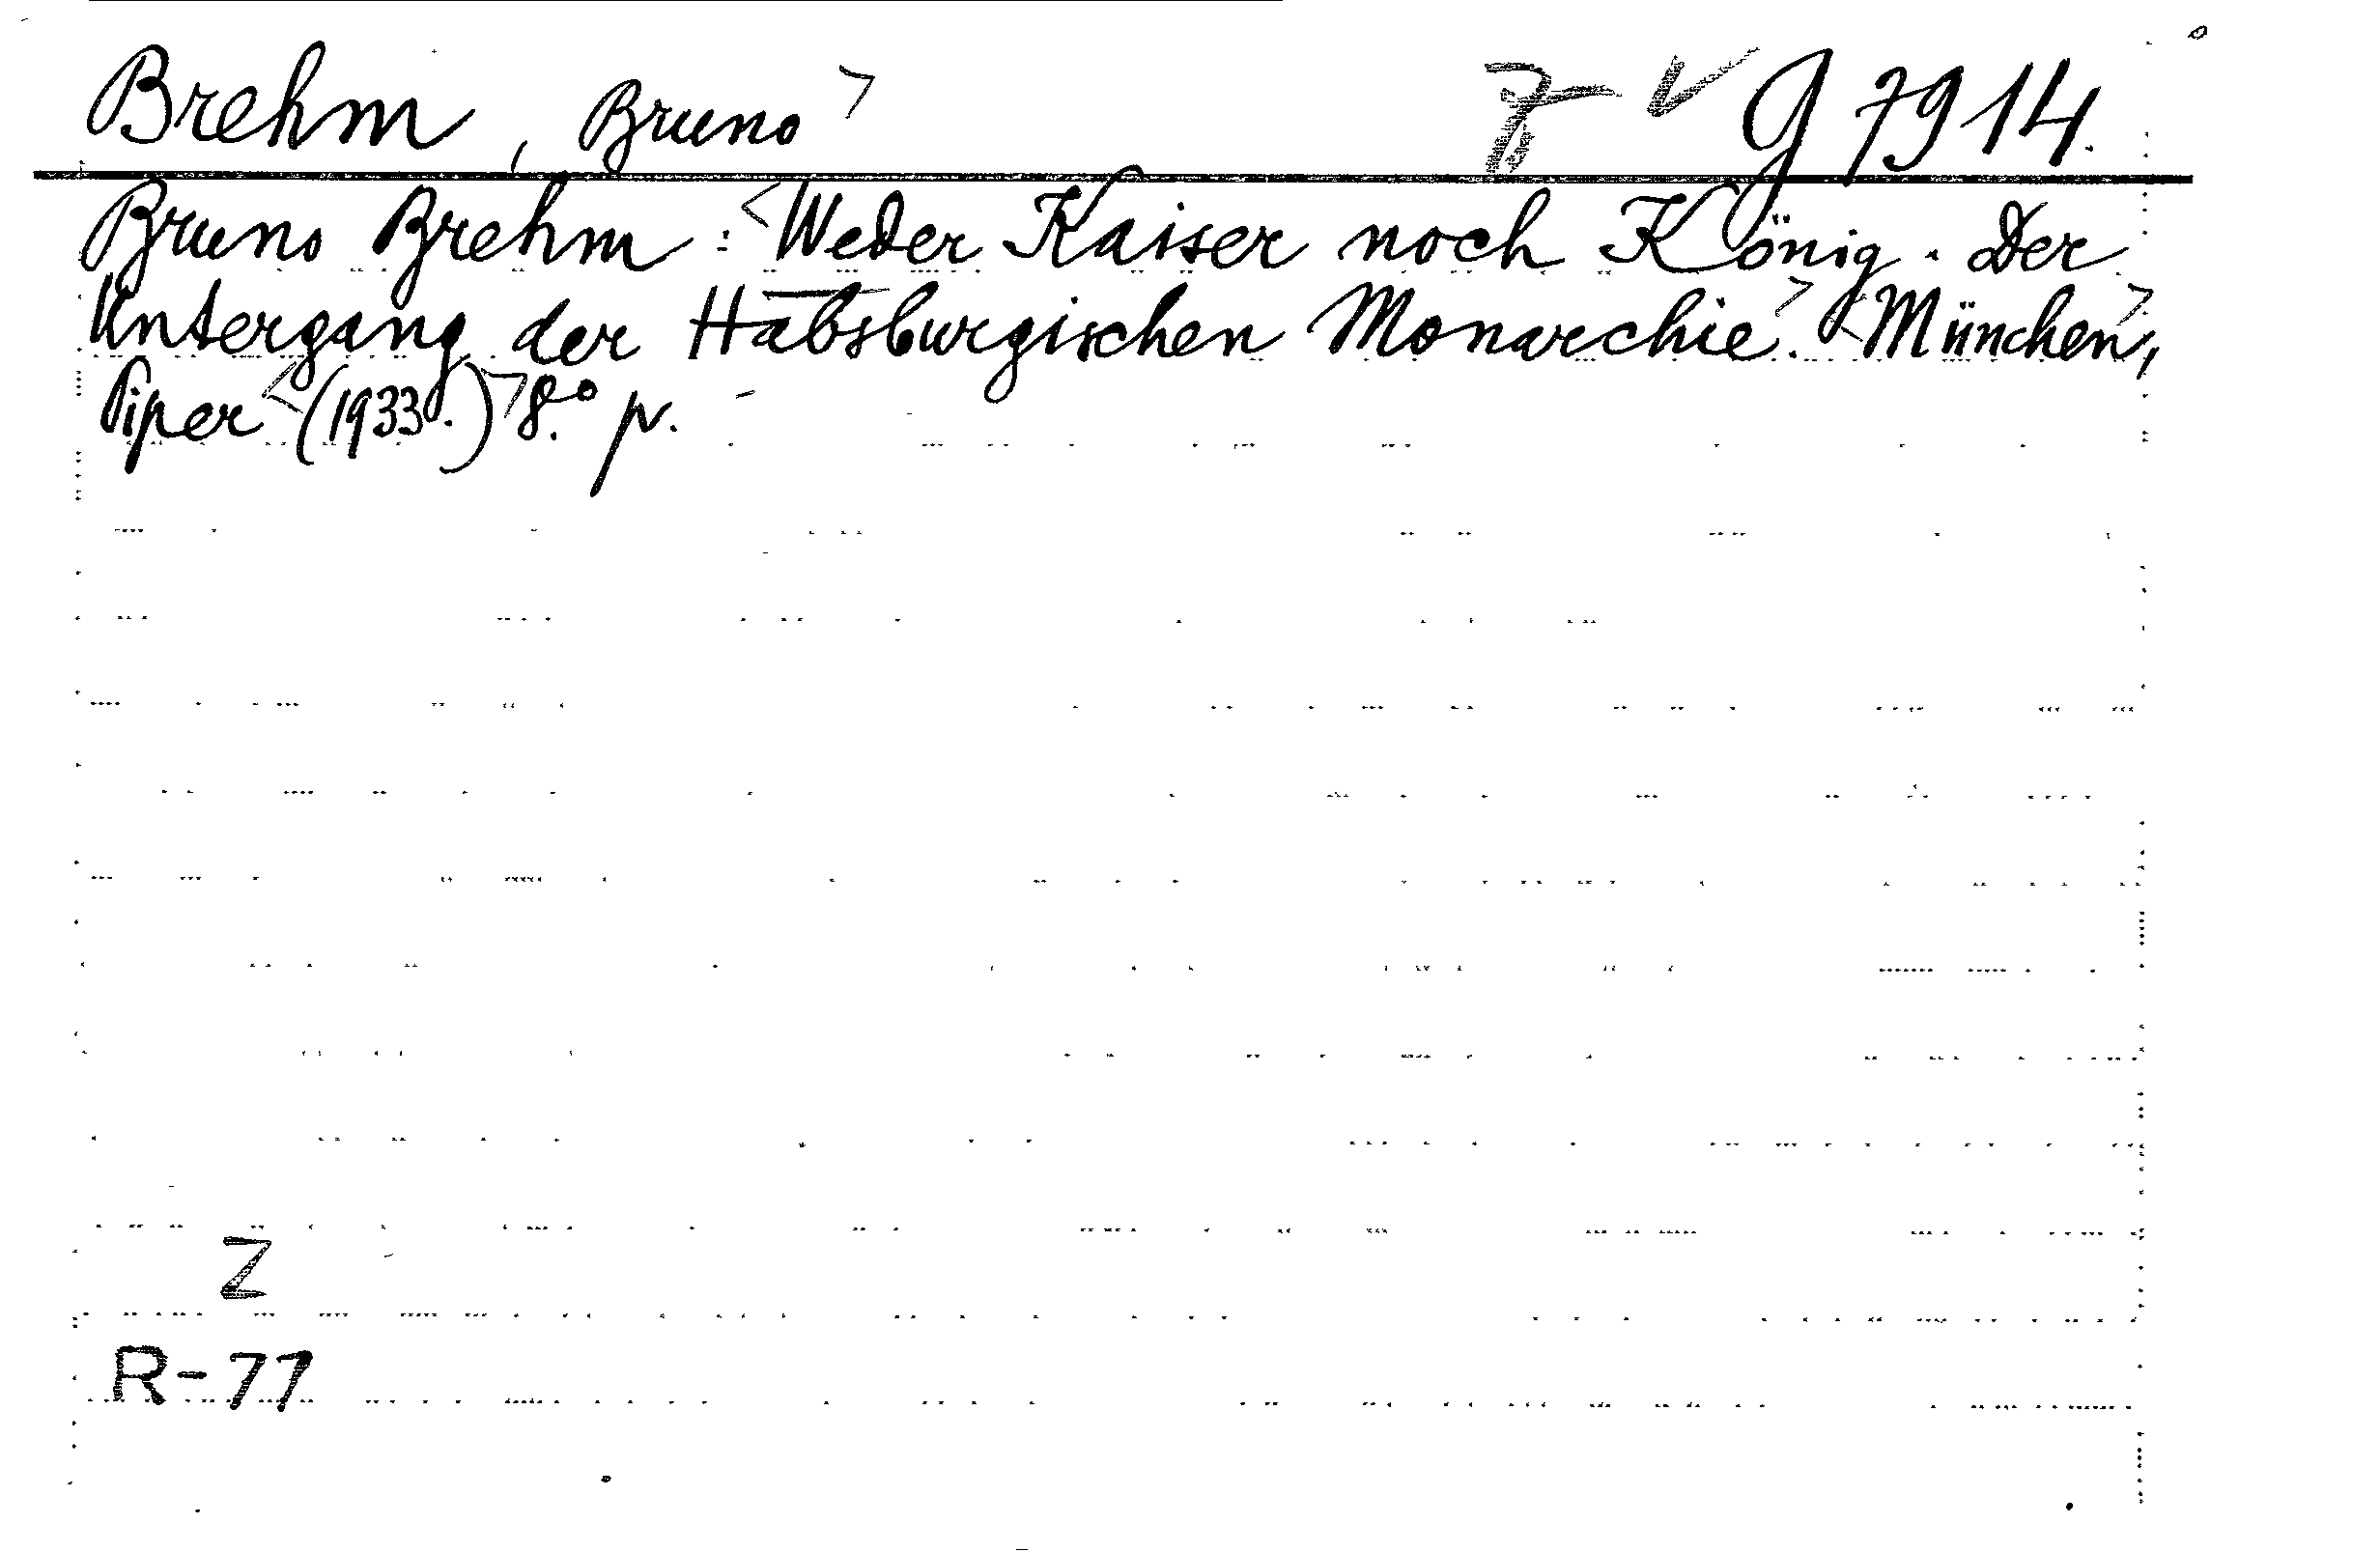 Brehm, Bruno G 7914.
Bruno Brehm: Weder Kaiser noch König. Der
Untergang der Habsburgischen Monarchie. München,
Piper (1933.) 8.° p.
Z
R-77